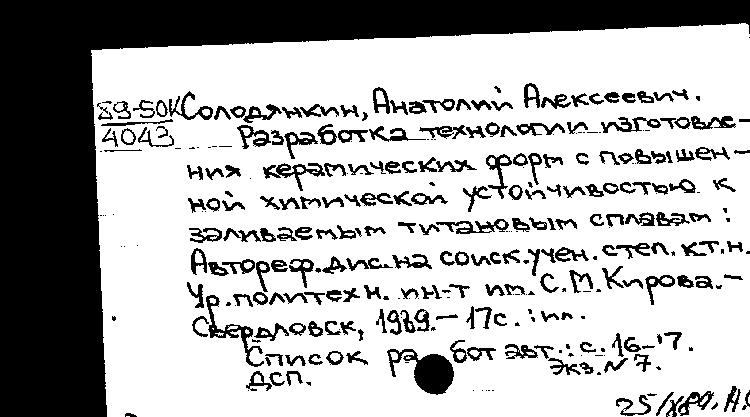 89-50К Солодянкин, Анатолий Алексеевич.
4043 Разработка технологии изготовле-
ния керамических форм с повышен-
ной химической устойчивостью к
заливаемым титановым сплавам :
Автореф. дис. на соиск. учен. степ. к.т.н.
Ур. политехн. ин-т им. С.М. Кирова. –
Свердловск, 1989. – 17с. : ил.
Список работ авт. : с. 16–17.
Экз. N 7.
ДСП.